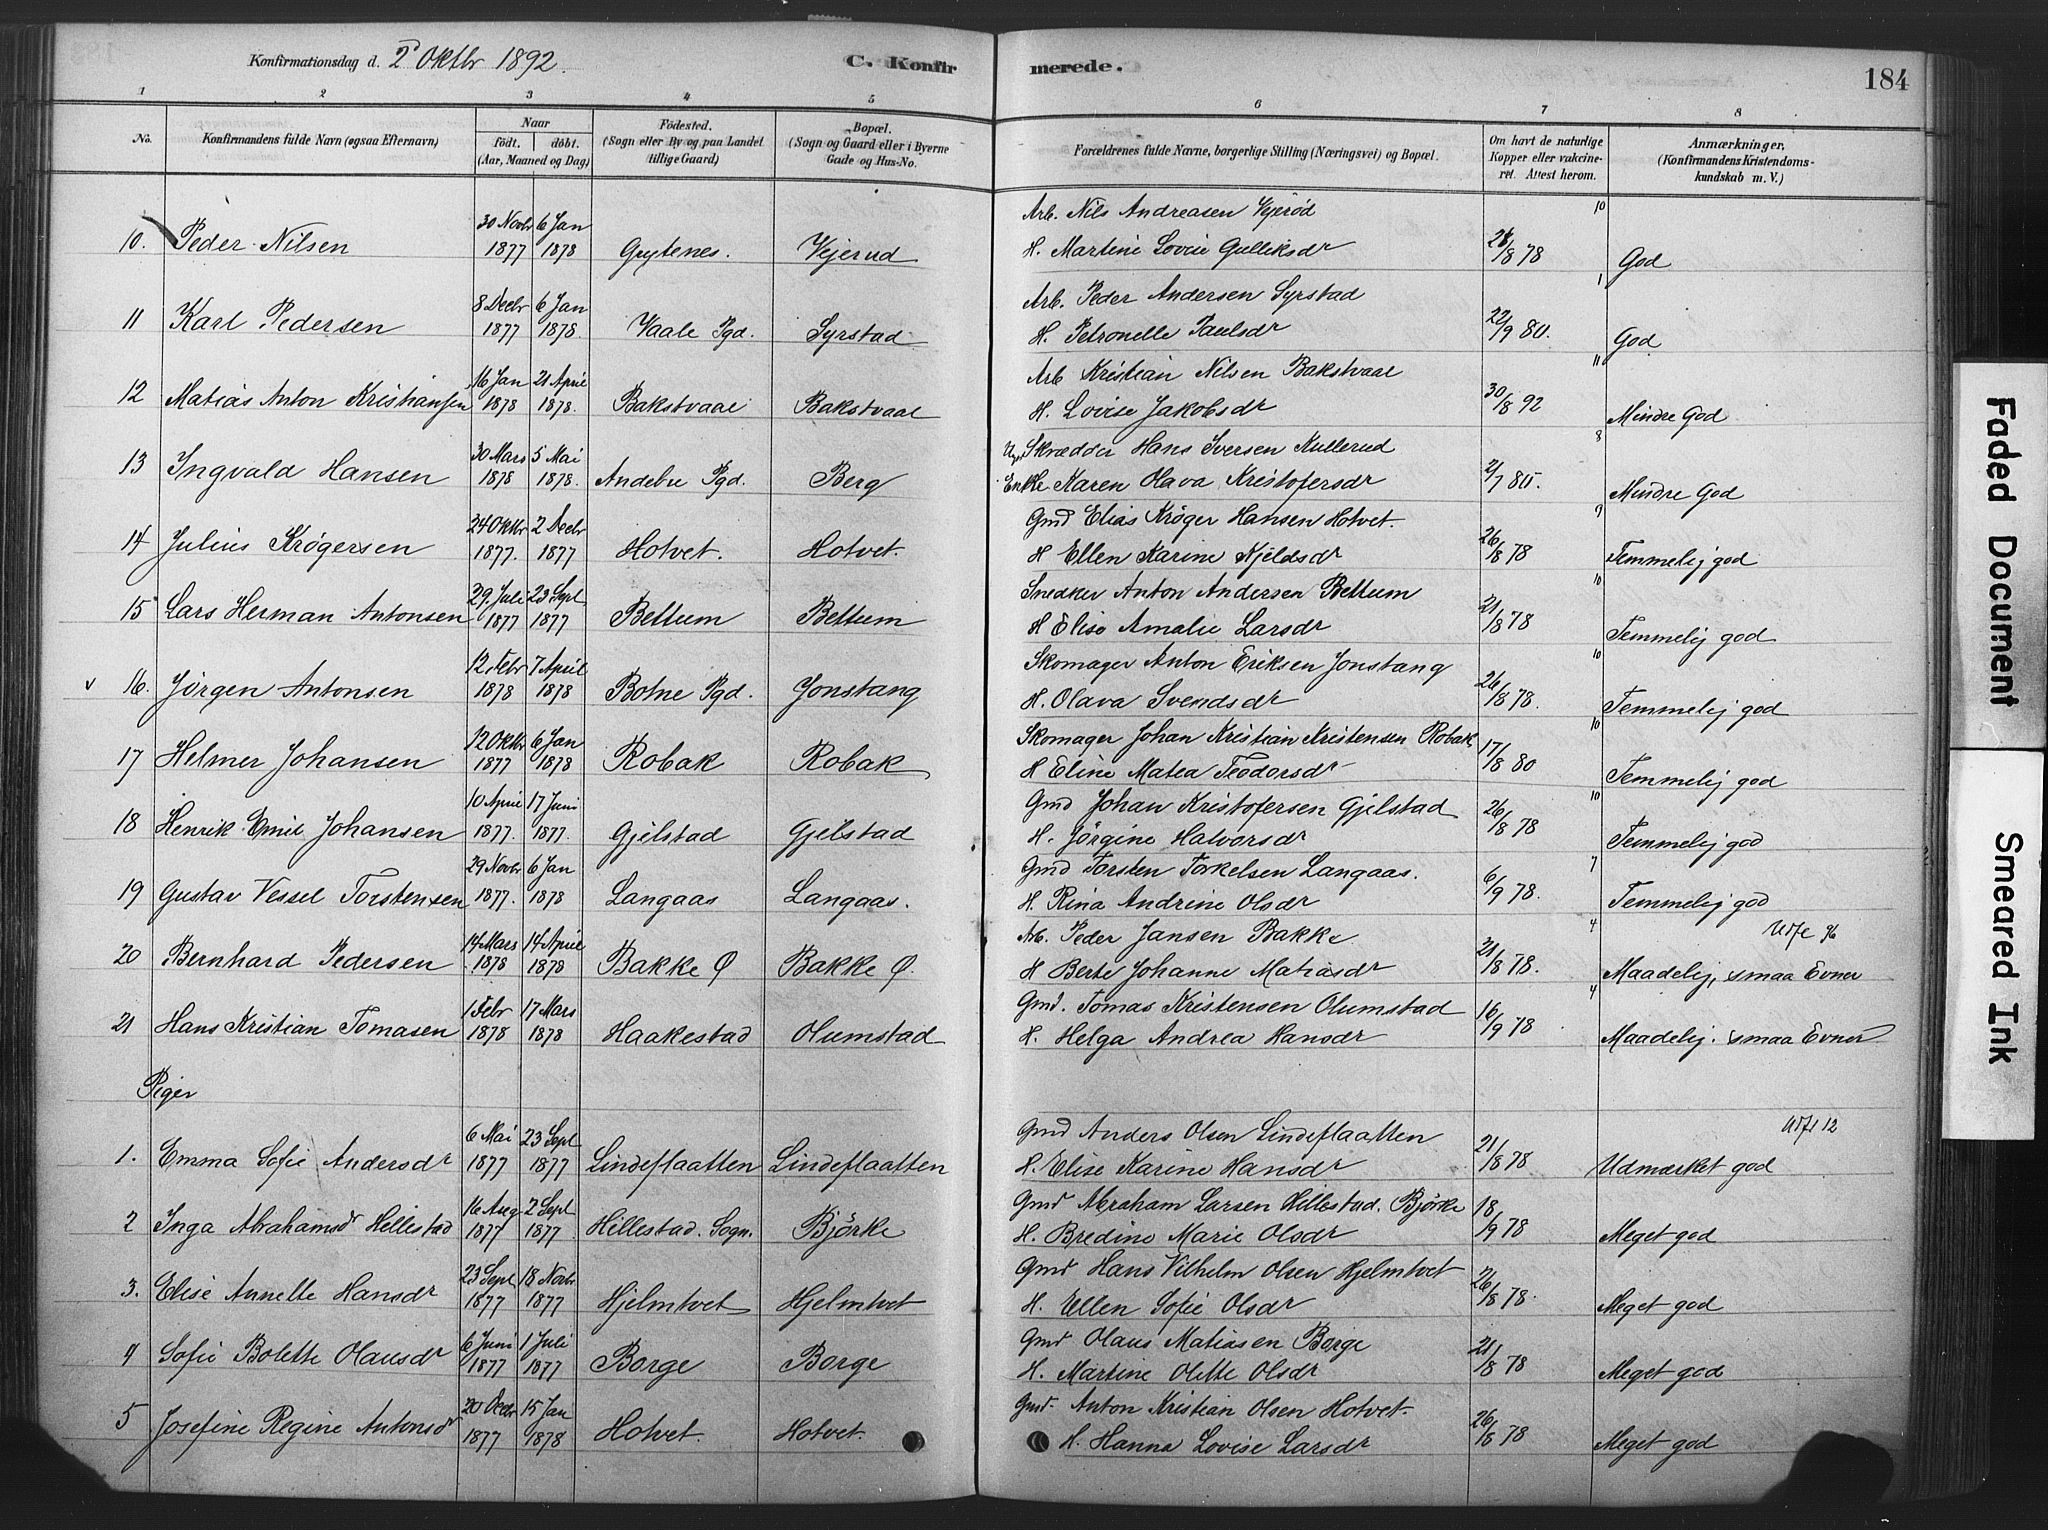 Konfirmationsdag d. 2d Oktbr 1892.
C. Konfirmerede.
184
1 2 3 4 5 6 7 8
No.
Konfirmandens fulde Navn (ogsaa Efternavn)
Naar
født. døbt.
(Aar, Maaned og Dag)
Fødested.
(Sogn eller By og paa Landet
tillige Gaard)
Bopæl.
(Sogn og Gaard eller i Byerne
Gade og Hus-No.
Forældrenes fulde Navne, borgerlige Stilling (Næringsvei) og Bopæl.
Om havt de naturlige
Kopper eller vakcine-
ret. Attest herom.
Anmærkninger,
(Konfirmandens Kristendoms-
kundskab m. V.)
30 Novbr 6 Jan Arb. Nils Andreasen Vejerød 10
10. Peder Nilsen 1877 1878 Grytenes. Vejerud H. Martine Lovise Gulliksdr 26/8 78 God
8 Decbr 6 Jan Arb. Peder Andersen Syrstad 1
11 Karl Pedersen 1877 1878. Vaale Pgd. Syrstad H. Petronelle Paulsdr 22/9 80. God
16 Jan 21 April Arb Kristian Nilsen Bakstvaal 11
12 Matias Anton Kristiansen 1878 1878. Bakstvaal Bakstvaal H. Lovise Jakobsdr 30/8 92 Mindre God
30 Mars 5 Mai Skrædder Hans Iversen Kullerud 8
13 Ingvald Hansen 1878 1878. Andebu Pgd. Berg Enke Karen Olava Kristofersdr 2/7 85. Mindre God
24 Oktbr 2 Decbr Gmd Elias Krøger Hansen Hotvet. 9
14 Julius Krøgersen 1877. 1877 Hotvet. Hotvet. H Ellen Karine Kjeldsdr 26/8 78 Temmelig god
29. Juli 23 Sept Snedker Anton Andersen Bettum 10
15 Lars Herman Antonsen 1877 1877 Bettum Bettum H Elise Amalie Larsdr 21/8 78 Temmelig god
12 Febr 7 April Skomager Anton Eriksen Jonstang 10
v 16. Jørgen Antonsen 1878 1878 Botne Pgd. Jonstang H. Olava Svendsdr 26/8 78. Temmelig god
12 Oktbr 6 Jan Skomager Johan Kristian Kristensen Robak 10
17 Helmer Johansen 1877 1878 Robak Robak H Eline Matea Teodorsdr 17/8 80 Temmelig god
10 April 17 Juni Gmd Johan Kristofersen Gjelstad 10
18 Henrik Emil Johansen 1877. 1877. Gjelstad Gjelstad H. Jørgine Halvorsdr 26/8 78 Temmelig god
29 Novbr 6 Jan Gmd Torsten Torkelsen Langaas. 7
19 Gustav Vessel Torstensen 1877. 1878 Langaas Langaas. H. Rina Andrine Olsdr 6/9 78. Temmelig god
14 Mars 14 April Arb. Peder Jansen Bakke 4 Udfl 96
20 Bernhard Pedersen 1878 1878 Bakke Ø Bakke Ø. H Berte Johanne Matiasdr 21/8 78. Maadelig, smaa Evner
1 Febr 17 Mars Gmd. Tomas Kristensen Olumstad 4
21 Hans Kristian Tomasen 1878 1878 Haakestad Olumstad H. Helga Andrea Hansdr 16/9 78 Maadelig. smaa Evner
Piger
6 Mai 23 Sept Gmd Anders Olsen Lindeflaatten 12
1. Emma Sofie Andersdr 1877 1877 Lindeflaatten Lindeflaatten H. Elise Karine Hansdr 21/8 78 Udmærket god
16 Aug 2 Sept Gmd Abraham Larsen Hillestad. Bjørke
2 Inga Abrahamsdr Hillestad 1877 1877. Hillestad. Sogn. Bjørke H. Bredine Marie Olsdr 18/9 78 Meget god
23 Sept 18 Novbr Gmd Hans Vilhelm Olsen Hjelmtvet
3. Elise Annette Hansdr 1877 1877 Hjelmtvet Hjelmtvet H. Ellen Sofie Olsdr 26/8 78. Meget god
6 Juni 1 Juli Gmd Olaus Matiasen Borge
4 Sofie Bolette Olausdr 1877 1877 Borge Borge H. Martine Olette Olsdr 21/8 78 Meget god
20 Decbr 15 Jan Gmd. Anton Kristian Olsen Hotvet.
5 Josefine Regine Antonsdr 1877 1878 Hotvet. Hotvet. H. Hanna Lovise Larsdr 26/8 78 Meget god
Faded Document
Smeared Ink